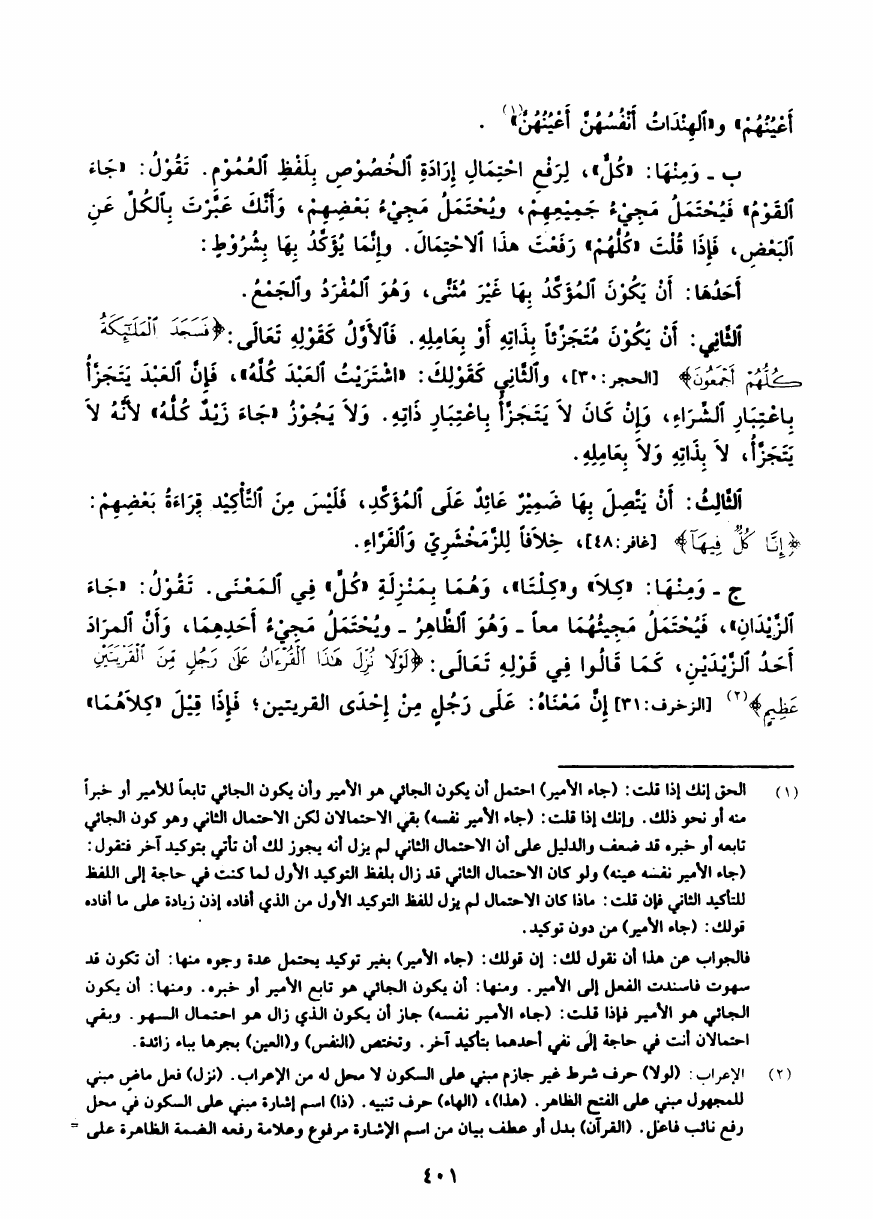 أَعْيُنُهُمْ» و«ٱلهِنْدَاتُ أَنْفُسُهُنَّ أَعْيُنُهُنَّ»(١) .
ب ـ وَمِنْهَا: «كُلٌّ»، لِرَفْعِ احْتِمَالِ إِرَادَةِ ٱلخُصُوصِ بِلَفْظِ ٱلعُمُومِ. تَقُولُ: «جَاءَ
ٱلقَوْمُ» فَيُحْتَمَلُ مَجِيْءُ جَمِيْعِهِمْ، ويُحْتَمَلُ مَجِيْءُ بَعْضِهِمْ، وَأَنَّكَ عَبَّرْتَ بِٱلكُلِّ عَنِ
ٱلبَعْضِ، فَإِذَا قُلْتَ «كُلُّهُمْ» رَفَعْتَ هذَا ٱلاحْتِمَالَ. وإِنَّمَا يُؤَكَّدُ بِهَا بِشُرُوْطٍ:
أَحَدُهَا: أَنْ يَكُوْنَ ٱلمُؤَكَّدُ بِهَا غَيْرَ مُثَنَّى، وَهُوَ ٱلمُفْرَدُ وٱلجَمْعُ.
ٱلثَّانِي: أَنْ يَكُوْنَ مُتَجَزِّئاً بِذَاتِهِ أَوْ بِعَامِلِهِ. فَٱلأَوَّلُ كَقَوْلِهِ تَعَالَى: ﴿فَسَجَدَ ٱلْمَلَٰٓئِكَةُ
كُلُّهُمْ أَجْمَعُونَ﴾ [الحجر:٣٠]، وٱلثَّانِي كَقَوْلِكَ: «اشْتَرَيْتُ ٱلعَبْدَ كُلَّهُ»، فَإِنَّ ٱلعَبْدَ يَتَجَزَّأُ
بِاعْتِبَارِ ٱلشِّرَاءِ، وَإِنْ كَانَ لاَ يَتَجَزَّأُ بِاعْتِبَارِ ذَاتِهِ. وَلاَ يَجُوْزُ «جَاءَ زَيْدٌ كُلُّهُ» لأَنَّهُ لاَ
يَتَجَزَّأُ، لاَ بِذَاتِهِ وَلاَ بِعَامِلِهِ.
ٱلثَّالِثُ: أَنْ يَتَّصِلَ بِهَا ضَمِيْرٌ عَائِدٌ عَلَى ٱلمُؤَكَّدِ، فَلَيْسَ مِنَ ٱلتَّأْكِيْدِ قِرَاءَةُ بَعْضِهِمْ:
﴿إِنَّا كُلٌّ فِيهَآ﴾ [غافر:٤٨]، خِلاَفاً لِلزَّمَخْشَرِيِّ وَٱلفَرَّاءِ.
ج ـ وَمِنْهَا: «كِلاَ» و«كِلْتَا»، وَهُمَا بِمَنْزِلَةِ «كُلّ» فِي ٱلمَعْنَى. تَقُوْلُ: «جَاءَ
ٱلزَّيْدَانِ»، فَيُحْتَمَلُ مَجِيئُهُمَا معاً ـ وَهُوَ ٱلظَّاهِرُ ـ ويُحْتَمَلُ مَجِيْءُ أَحَدِهِمَا، وَأَنَّ ٱلمرَادَ
أَحَدُ ٱلزَّيْدَيْنِ، كَمَا قَالُوا فِي قَوْلِهِ تَعَالَى: ﴿لَوْلَا نُزِّلَ هَٰذَا ٱلْقُرْءَانُ عَلَىٰ رَجُلٍ مِّنَ ٱلْقَرْيَتَيْنِ
عَظِيمٍ﴾(٢) [الزخرف:٣١] إِنَّ مَعْنَاهُ: عَلَى رَجُلٍ مِنْ إِحْدَى القريتين؛ فَإِذَا قِيْلَ «كِلاَهُمَا»
(١) الحق إنك إذا قلت: (جاء الأمير) احتمل أن يكون الجائي هو الأمير وأن يكون الجائي تابعاً للأمير أو خبراً
منه أو نحو ذلك. وإنك إذا قلت: (جاء الأمير نفسه) بقي الاحتمالان لكن الاحتمال الثاني وهو كون الجائي
تابعه أو خبره قد ضعف والدليل على أن الاحتمال الثاني لم يزل أنه يجوز لك أن تأتي بتوكيد آخر فتقول:
(جاء الأمير نفسه عينه) ولو كان الاحتمال الثاني قد زال بلفظ التوكيد الأول لما كنت في حاجة إلى اللفظ
للتأكيد الثاني فإن قلت: ماذا كان الاحتمال لم يزل للفظ التوكيد الأول من الذي أفاده إذن زيادة على ما أفاده
قولك: (جاء الأمير) من دون توكيد.
فالجواب عن هذا أن نقول لك: إن قولك: (جاء الأمير) بغير توكيد يحتمل عدة وجوه منها: أن تكون قد
سهوت فاسندت الفعل إلى الأمير. ومنها: أن يكون الجائي هو تابع الأمير أو خبره. ومنها: أن يكون
الجائي هو الأمير فإذا قلت: (جاء الأمير نفسه) جاز أن يكون الذي زال هو احتمال السهو. وبقي
احتمالان أنت في حاجة إلَى نفي أحدهما بتأكيد آخر. وتختص (النفس) و(العين) بجرها بباء زائدة.
(٢) الإعراب: (لولا) حرف شرط غير جازم مبني على السكون لا محل له من الإعراب. (نزل) فعل ماضٍ مبني
للمجهول مبني على الفتح الظاهر. (هذا)، (الهاء) حرف تنبيه. (ذا) اسم إشارة مبني على السكون في محل
رفع نائب فاعل. (القرآن) بدل أو عطف بيان من اسم الإشارة مرفوع وعلامة رفعه الضمة الظاهرة على =
٤٠١